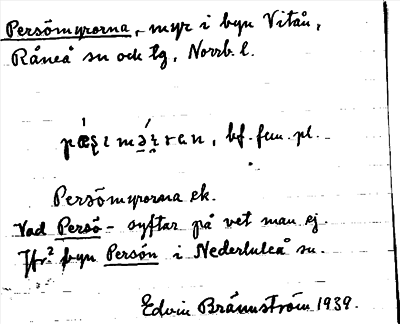 Persömyrorna, myr i byn Vitån,
Råneå sn och tg, Norrb. l.
bf. fem. pl.
Persömyrorna ek.
Vad Persö- syftar på vet man ej.
Jfr² byn Persön i Nederluleå sn.
Edvin Brännström 1939.